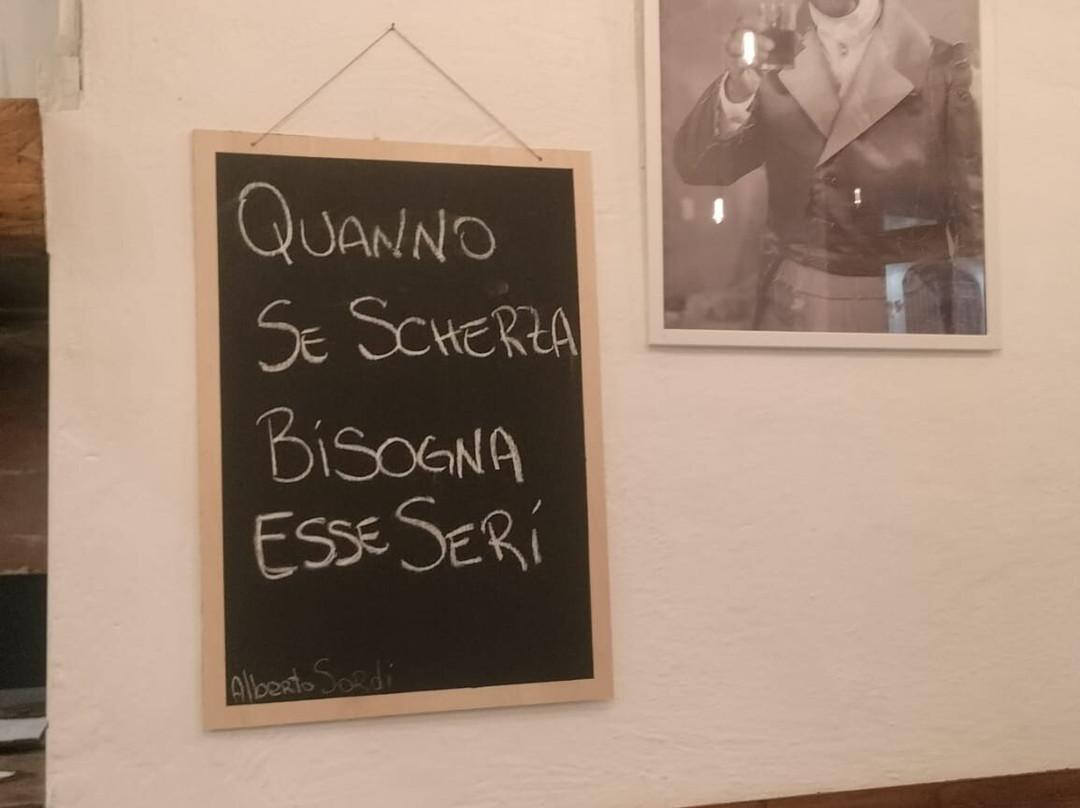 QUANNO
SE SCHERZA
BiSOGNA
ESSE SERi
Alberto Sordi